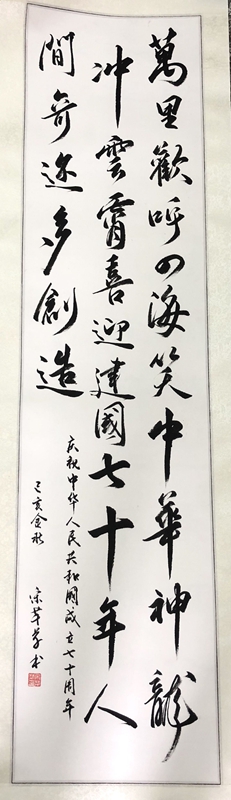 萬里歡呼四海笑中華神龍
冲雲霄喜迎建國七十年人
間奇迹多創造
庆祝中华人民共和國成立七十周年
己亥金秋